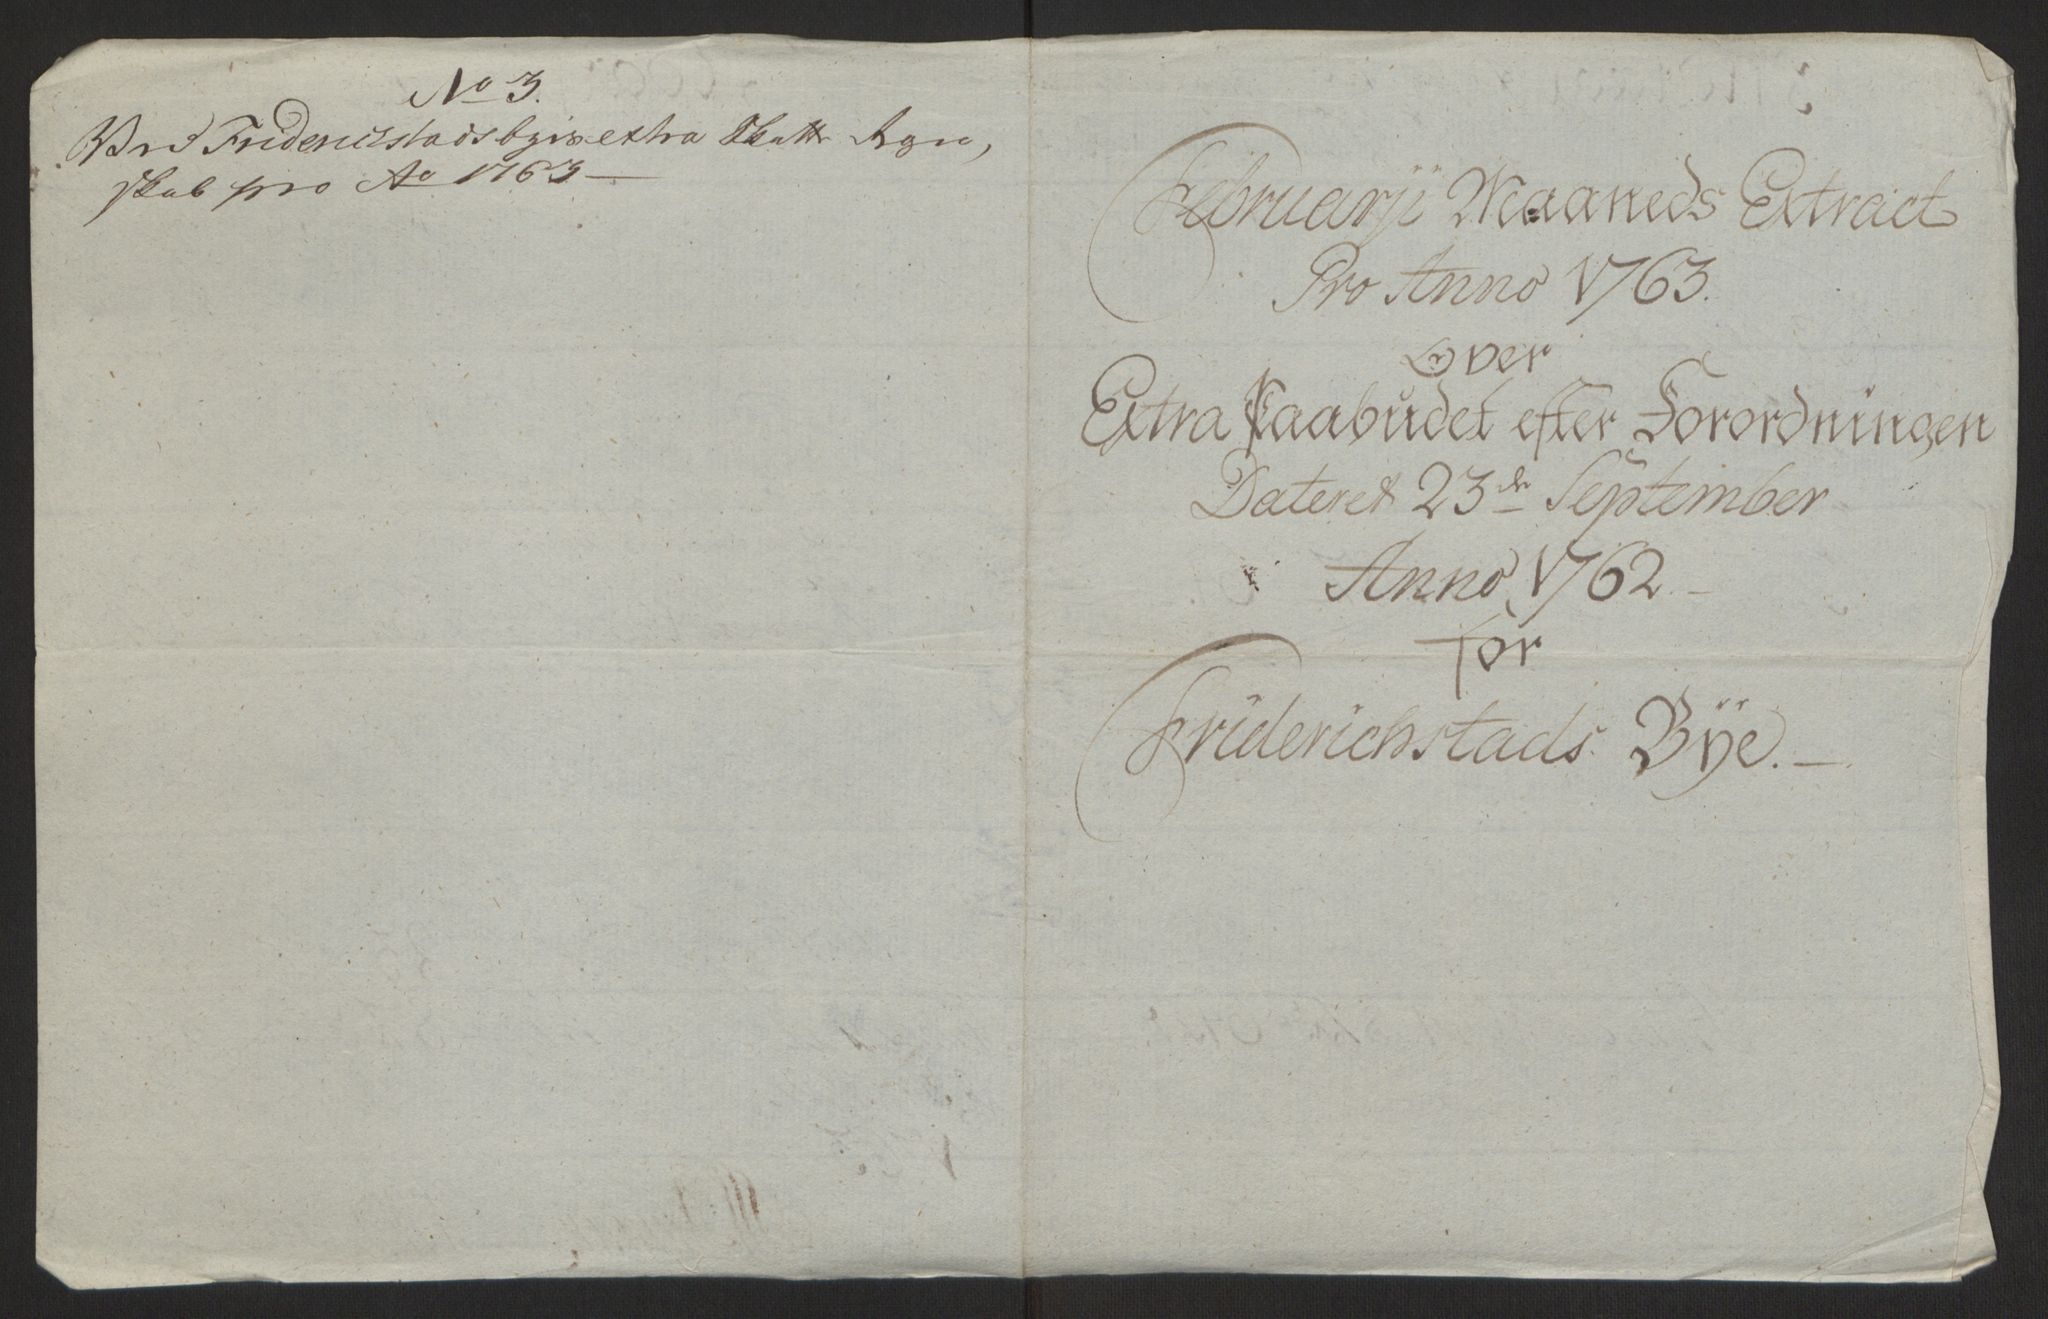 No 3.
Ved Friderichstads byes extra Skatte Regn,
skab pro Ao 1763
Februarÿ Maaneds Extract
Pro Anno 1763.
Over
Extra Paabudet efter Forordningen
Dateret 23de September
Anno 1762.
For
Friderichstads Bÿe.